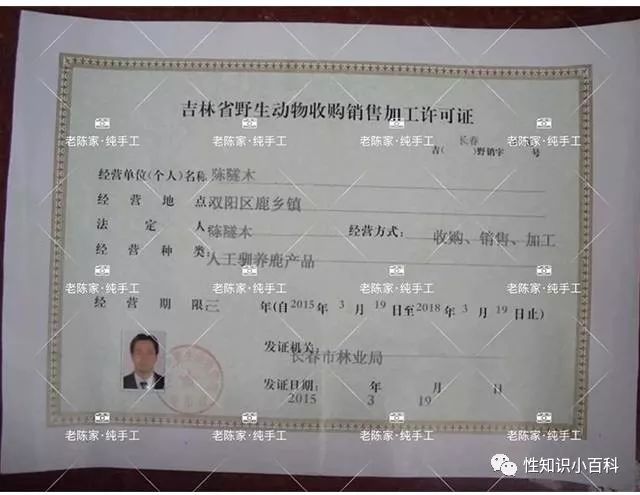 吉林省野生动物收购销售加工许可证
长春
吉( )野销字 号
经营单位(个人)名称 陈隧木
经营地点 双阳区鹿乡镇
法定人 陈隧木 经营方式: 收购、销售、加工
经营种类: 人工驯养鹿产品
经营期限 三年(自2015年3月19日至2018年3月19日止)
发证机关: 长春市林业局
发证日期: 2015年3月19日
老陈家·纯手工 老陈家·纯手工 老陈家·纯手工 老陈家·纯手工
老陈家·纯手工 老陈家·纯手工 老陈家·纯手工 老陈家·纯手工
老陈家·纯手工 老陈家·纯手工 老陈家·纯手工 老陈家·纯手工
性知识小百科